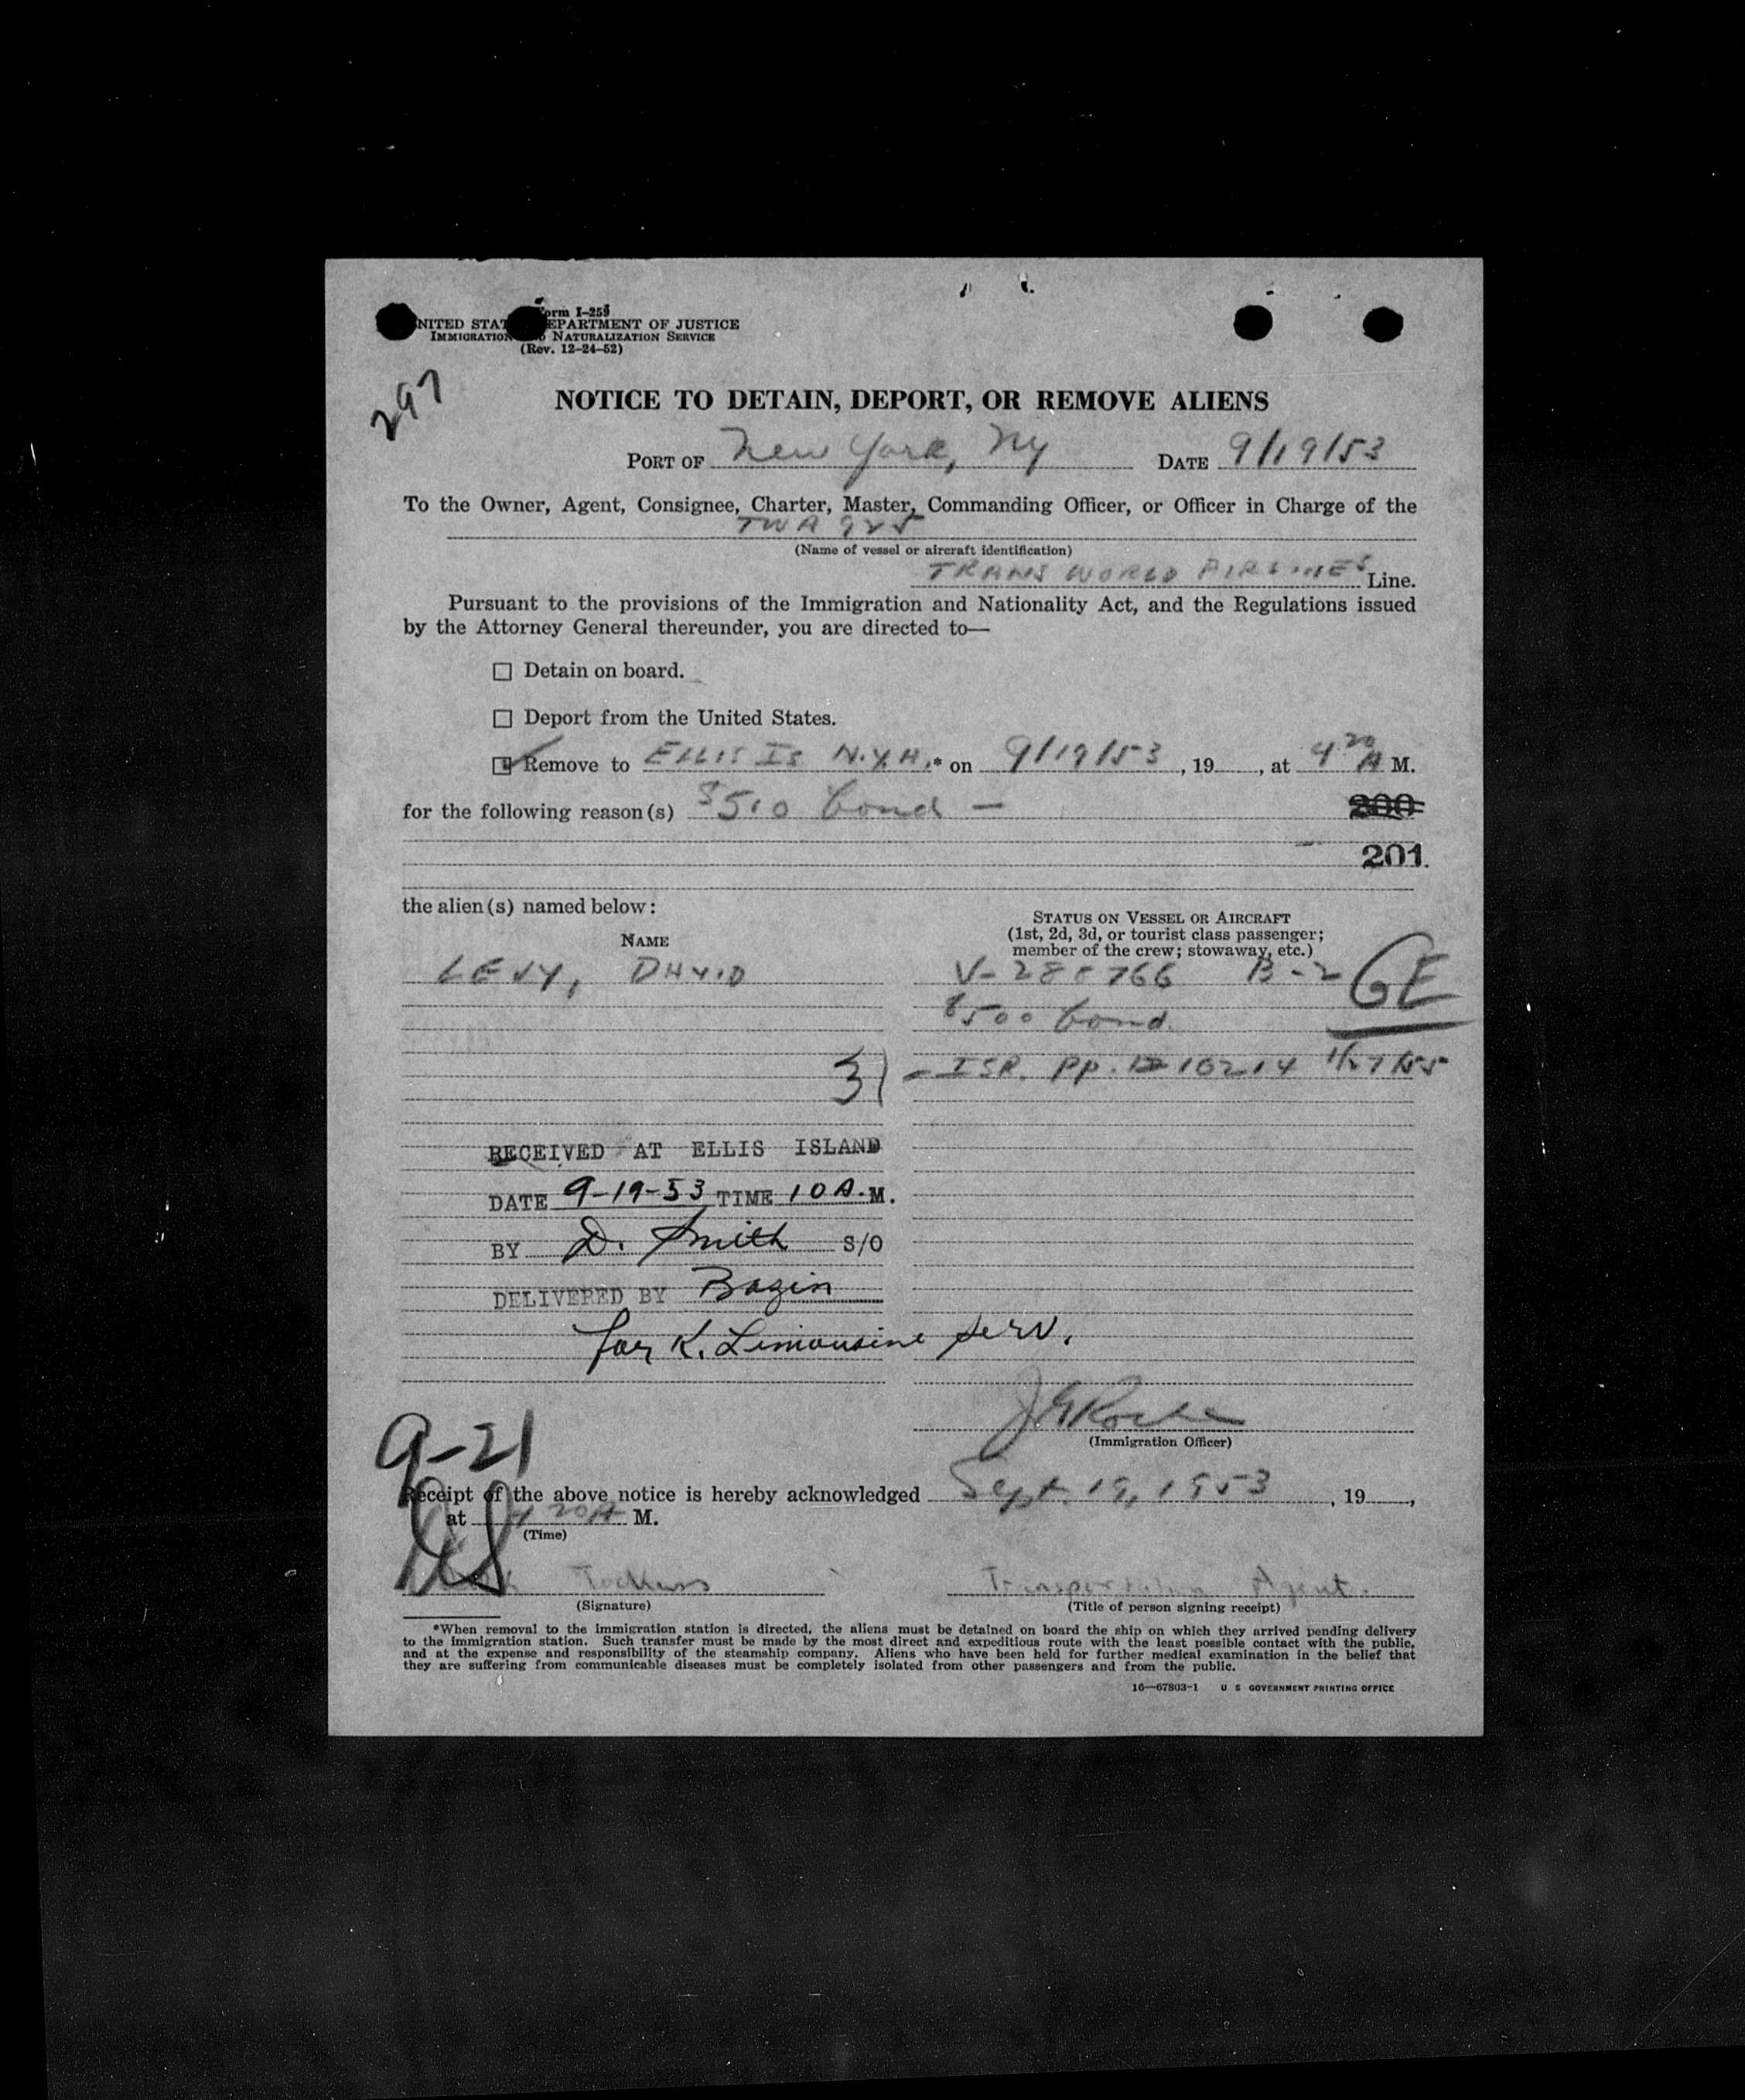 Form I-259
UNITED STATES DEPARTMENT OF JUSTICE
IMMIGRATION AND NATURALIZATION SERVICE
(Rev. 12-24-52)
297
NOTICE TO DETAIN, DEPORT, OR REMOVE ALIENS
PORT OF New York, Ny DATE 9/19/53
To the Owner, Agent, Consignee, Charter, Master, Commanding Officer, or Officer in Charge of the
TWA 925
(Name of vessel or aircraft identification)
TRANS WORLD AIRLINES Line.
Pursuant to the provisions of the Immigration and Nationality Act, and the Regulations issued
by the Attorney General thereunder, you are directed to—
Detain on board.
Deport from the United States.
Remove to ELLIS IS N.Y.H.* on 9/19/53, 19, at 4 20 A M.
for the following reason(s) $500 bond — 200
201.
the alien(s) named below:
STATUS ON VESSEL OR AIRCRAFT
(1st, 2d, 3d, or tourist class passenger;
member of the crew; stowaway, etc.)
NAME
LEVY, DAVID V- 766 B-2 GE
$500 bond.
31 - ISR. PP. 10214 1/27/55
RECEIVED AT ELLIS ISLAND
DATE 9-19-53 TIME 10 A.M.
BY D. Smith S/O
DELIVERED BY Bazin
for K. Limousine Serv.
(Immigration Officer)
9-21
Receipt of the above notice is hereby acknowledged Sept. 19, 1953, 19,
at 4 20 A M.
(Time)
Transportation Agent.
(Signature) (Title of person signing receipt)
*When removal to the immigration station is directed, the aliens must be detained on board the ship on which they arrived pending delivery
to the immigration station. Such transfer must be made by the most direct and expeditious route with the least possible contact with the public,
and at the expense and responsibility of the steamship company. Aliens who have been held for further medical examination in the belief that
they are suffering from communicable diseases must be completely isolated from other passengers and from the public.
16—67803-1 U S GOVERNMENT PRINTING OFFICE